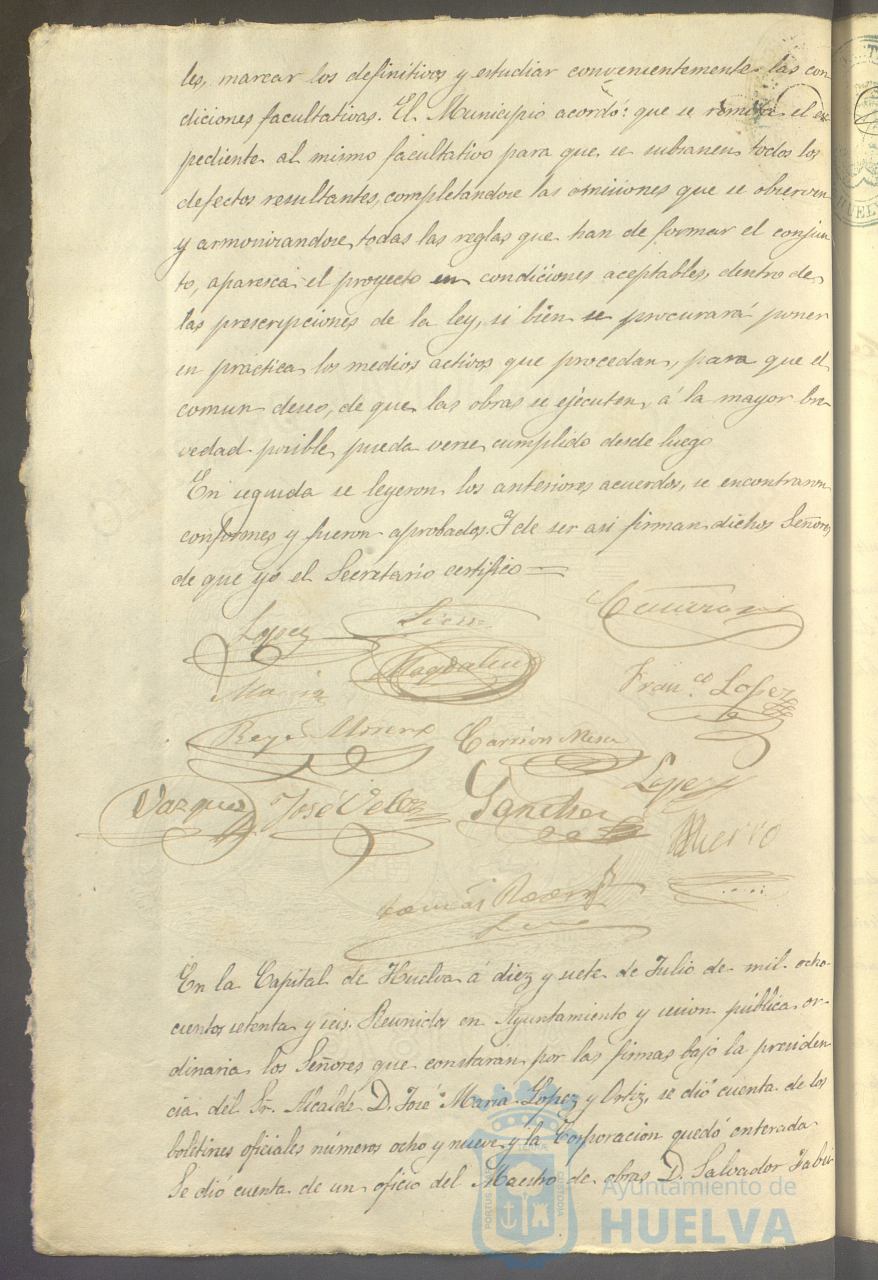 les, marcar los definitivos y estudiar convenientemente las con
diciones facultativas. El Municipio acordó: que se remita el es
pediente al mismo facultativo para que se subsanen todos los
defectos resultantes, completandose las omisiones que se observen
y armonizandose todas las reglas que han de formar el conjun
to, aparesca el proyecto en condiciones aceptables, dentro de
las prescripciones de la ley, si bien se procurará poner
en práctica los medios activos que procedan, para que el
comun deseo, de que las obras se ejecuten, á la mayor bre
vedad posible, pueda verse cumplido desde luego
En seguida se leyeron los anteriores acuerdos, se encontraron
conformes y fueron aprobados. Y de ser asi firman dichos Señores
de que yo el Secretario certifico =
Lopez
Magdalena
Franco. Lopez
Garrion Mesa
Lopez
Vazquez José Veloz Sanchez
En la Capital de Huelva á diez y siete de Julio de mil ocho
cientos setenta y seis. Reunidos en Ayuntamiento y sesion pública or-
dinaria los Señores que constaran por las firmas bajo la presiden
cia del Sr. Alcalde D. José Maria Lopez y Ortiz, se dió cuenta de los
boletines oficiales números ocho y nueve y la Corporacion quedó enterada
Se dió cuenta de un oficio del Maestro de obras D. Salvador
PORTUS
CUSTODIA
Ayuntamiento de
HUELVA